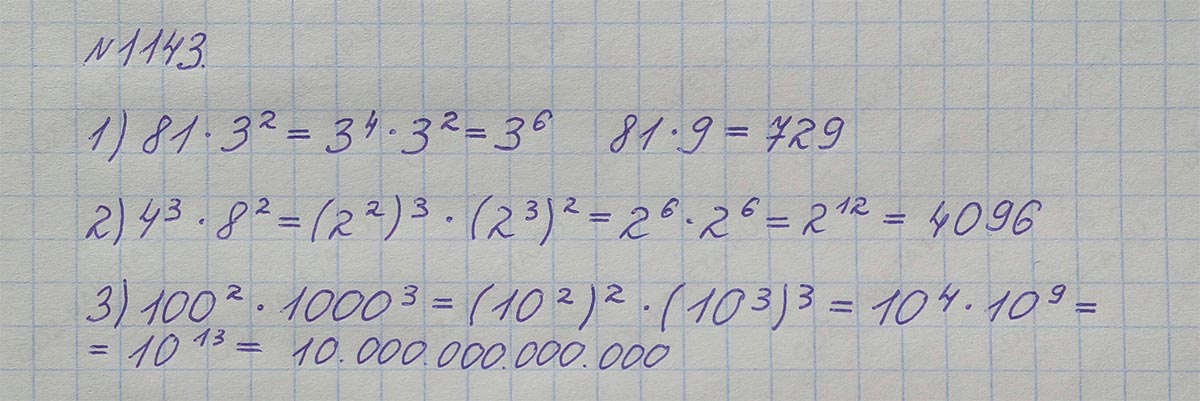 №1143.
1) 81·3² = 3⁴·3² = 3⁶ 81·9 = 729
2) 4³·8² = (2²)³·(2³)² = 2⁶·2⁶ = 2¹² = 4096
3) 100²·1000³ = (10²)²·(10³)³ = 10⁴·10⁹ =
= 10¹³ = 10.000.000.000.000